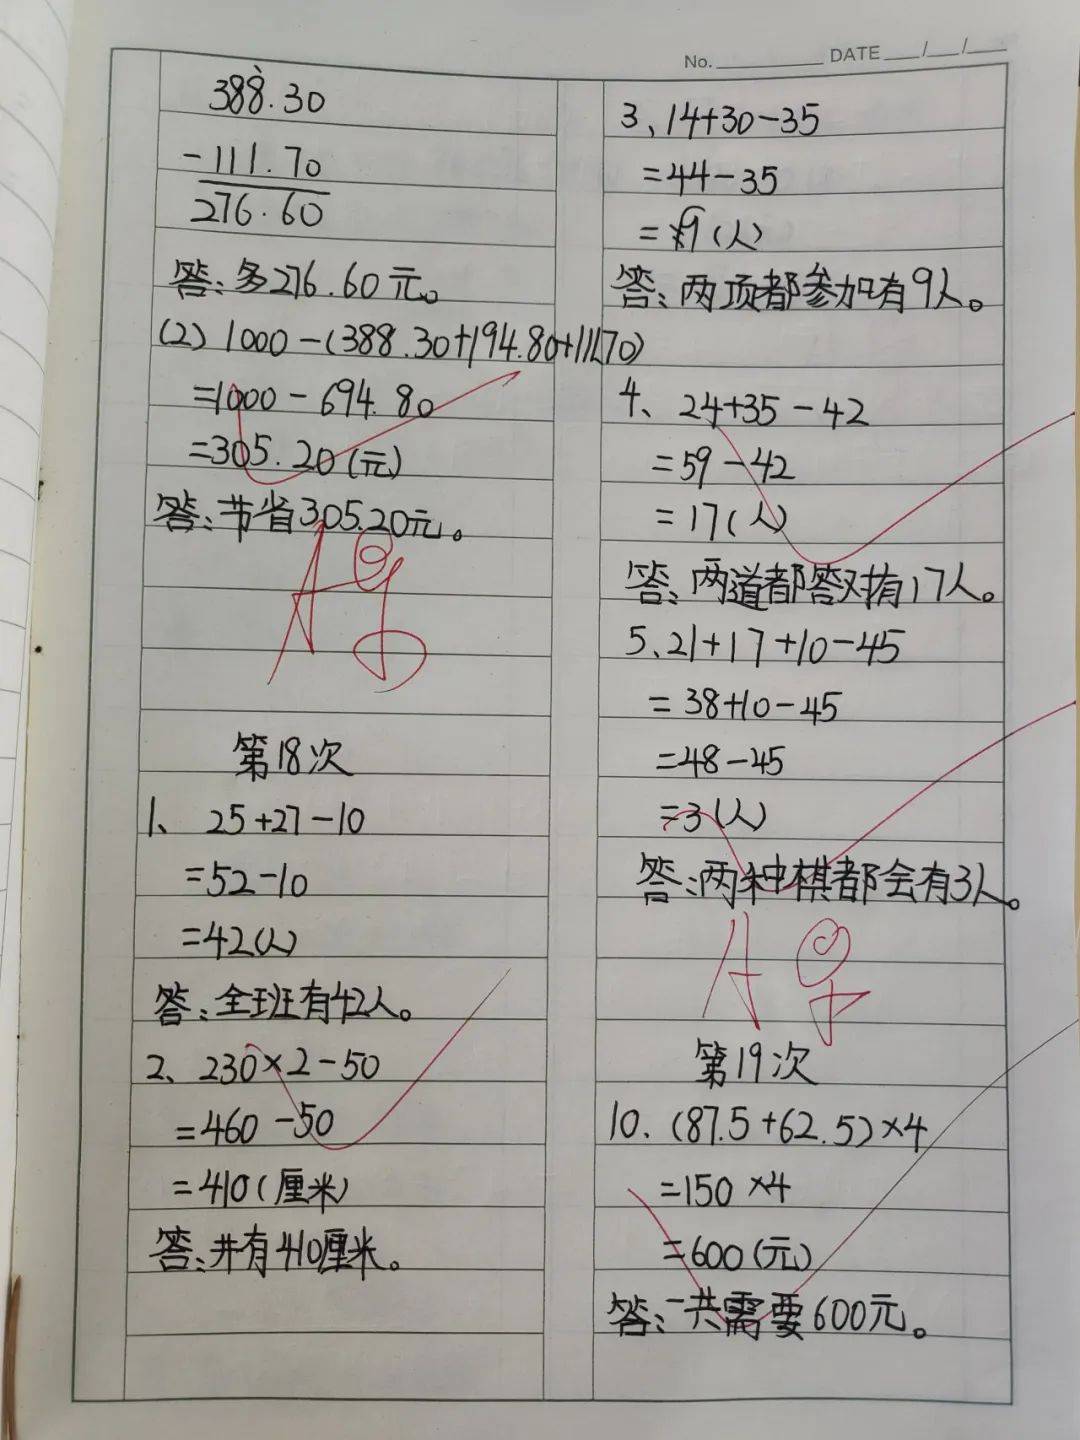 No. DATE / /
388.30
-111.70
276.60
答:多276.60元。
(2) 1000-(388.30+194.80+111.70)
=1000-694.80
=305.20(元)
答:节省305.20元。
第18次
1、 25+27-10
=52-10
=42(人)
答:全班有42人。
2、 230×2-50
=460-50
=410(厘米)
答:井有410厘米。
3、14+30-35
=44-35
=9(人)
答:两项都参加有9人。
4、 24+35-42
=59-42
=17(人)
答:两道都答对有17人。
5、21+17+10-45
=38+10-45
=48-45
=3(人)
答:两种棋都会有3人。
第19次
10、(87.5+62.5)×4
=150×4
=600(元)
答:一共需要600元。